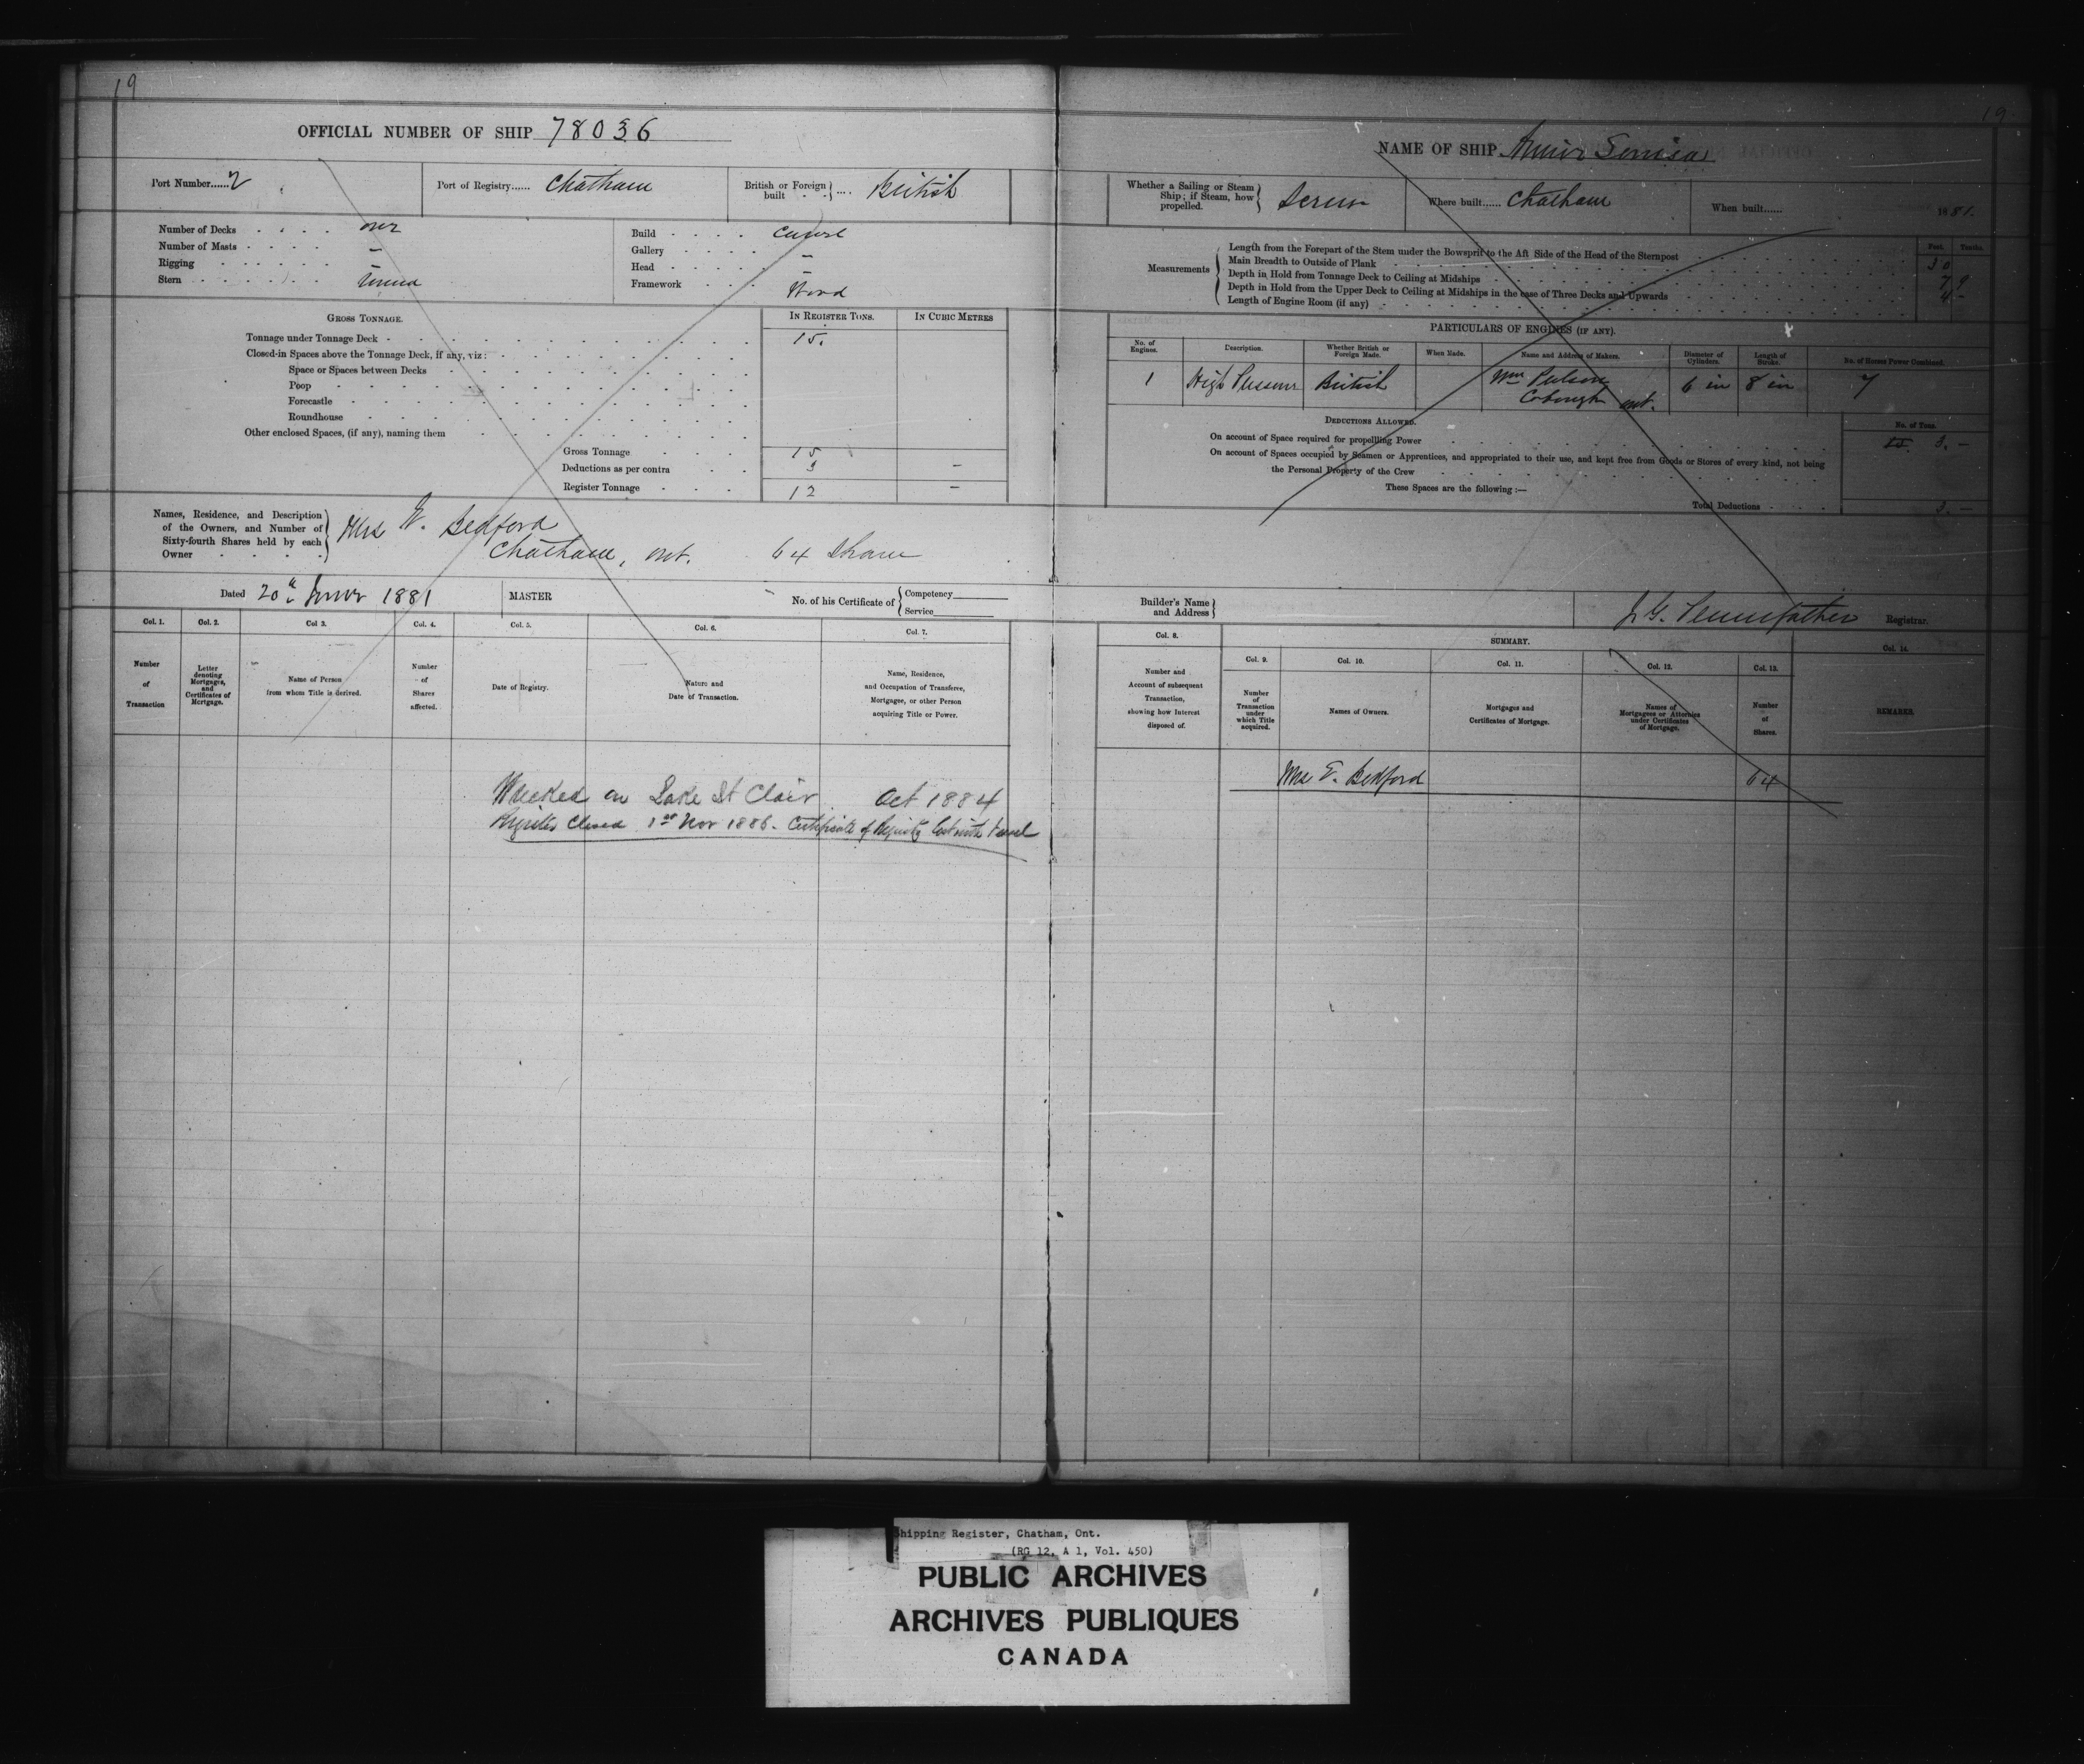 19
OFFICIAL NUMBER OF SHIP 78036
Port Number......2
Port of Registry...... Chatham
British or Foreign built .... British
Number of Decks . . . . one
Number of Masts . . . . –
Rigging . . . . . .
Stern . . . . . . Round
Build . . . . Carvel
Gallery . . . . –
Head . . . . –
Framework . . . Wood
GROSS TONNAGE.
IN REGISTER TONS.
IN CUBIC METRES
Tonnage under Tonnage Deck - 15.
Closed-in Spaces above the Tonnage Deck, if any, viz:
Space or Spaces between Decks
Poop
Forecastle
Roundhouse
Other enclosed Spaces, (if any), naming them
Gross Tonnage 15
Deductions as per contra 3 –
Register Tonnage 12 –
Names, Residence, and Description
of the Owners, and Number of
Sixty-fourth Shares held by each
Owner
Mrs E. Bedford
Chatham, Ont. 64 Shares
Dated 20th June 1881
MASTER
No. of his Certificate of
Competency
Service
Col. 1.
Number
of
Transaction
Col. 2.
Letter
denoting
Mortgages,
and
Certificates of
Mortgage.
Col 3.
Name of Person
from whom Title is derived.
Col. 4.
Number
of
Shares
affected.
Col. 5.
Date of Registry.
Col. 6.
Nature and
Date of Transaction.
Col. 7.
Name, Residence,
and Occupation of Transferee,
Mortgagee, or other Person
acquiring Title or Power.
Wrecked on Lake St Clair Oct 1884
Register Closed 1st Nov 1886. Certificate of Registry lost with Vessel
19
NAME OF SHIP
Whether a Sailing or Steam
Ship; if Steam, how
propelled.
Screw
Where built...... Chatham
When built...... 1881.
Measurements
Feet. Tenths.
Length from the Forepart of the Stem under the Bowsprit to the Aft Side of the Head of the Sternpost 30
Main Breadth to Outside of Plank 7 9
Depth in Hold from Tonnage Deck to Ceiling at Midships 4 –
Depth in Hold from the Upper Deck to Ceiling at Midships in the case of Three Decks and Upwards
Length of Engine Room (if any)
PARTICULARS OF ENGINES (IF ANY).
No. of Engines.
Description.
Whether British or Foreign Made.
When Made.
Name and Address of Makers.
Diameter of Cylinders.
Length of Stroke.
No. of Horse Power Combined.
1 High Pressure British Wm Ont. 6 in 8 in 7
DEDUCTIONS ALLOWED.
No. of Tons.
On account of Space required for propelling Power 3. –
On account of Spaces occupied by Seamen or Apprentices, and appropriated to their use, and kept free from Goods or Stores of every kind, not being
the Personal Property of the Crew
These Spaces are the following :—
Total Deductions 3. –
Builder's Name
and Address
J. G. Pennefather Registrar.
Col. 8.
Number and
Account of subsequent
Transaction,
showing how Interest
disposed of.
SUMMARY.
Col. 9.
Number
of
Transaction
under
which Title
acquired.
Col. 10.
Names of Owners.
Col. 11.
Mortgages and
Certificates of Mortgage.
Col. 12.
Names of
Mortgagees or Attornies
under Certificates
of Mortgage.
Col. 13.
Number
of
Shares.
Col. 14.
REMARKS.
Mrs E. Bedford 64
Shipping Register, Chatham, Ont.
(RG 12, A 1, Vol. 450)
PUBLIC ARCHIVES
ARCHIVES PUBLIQUES
CANADA